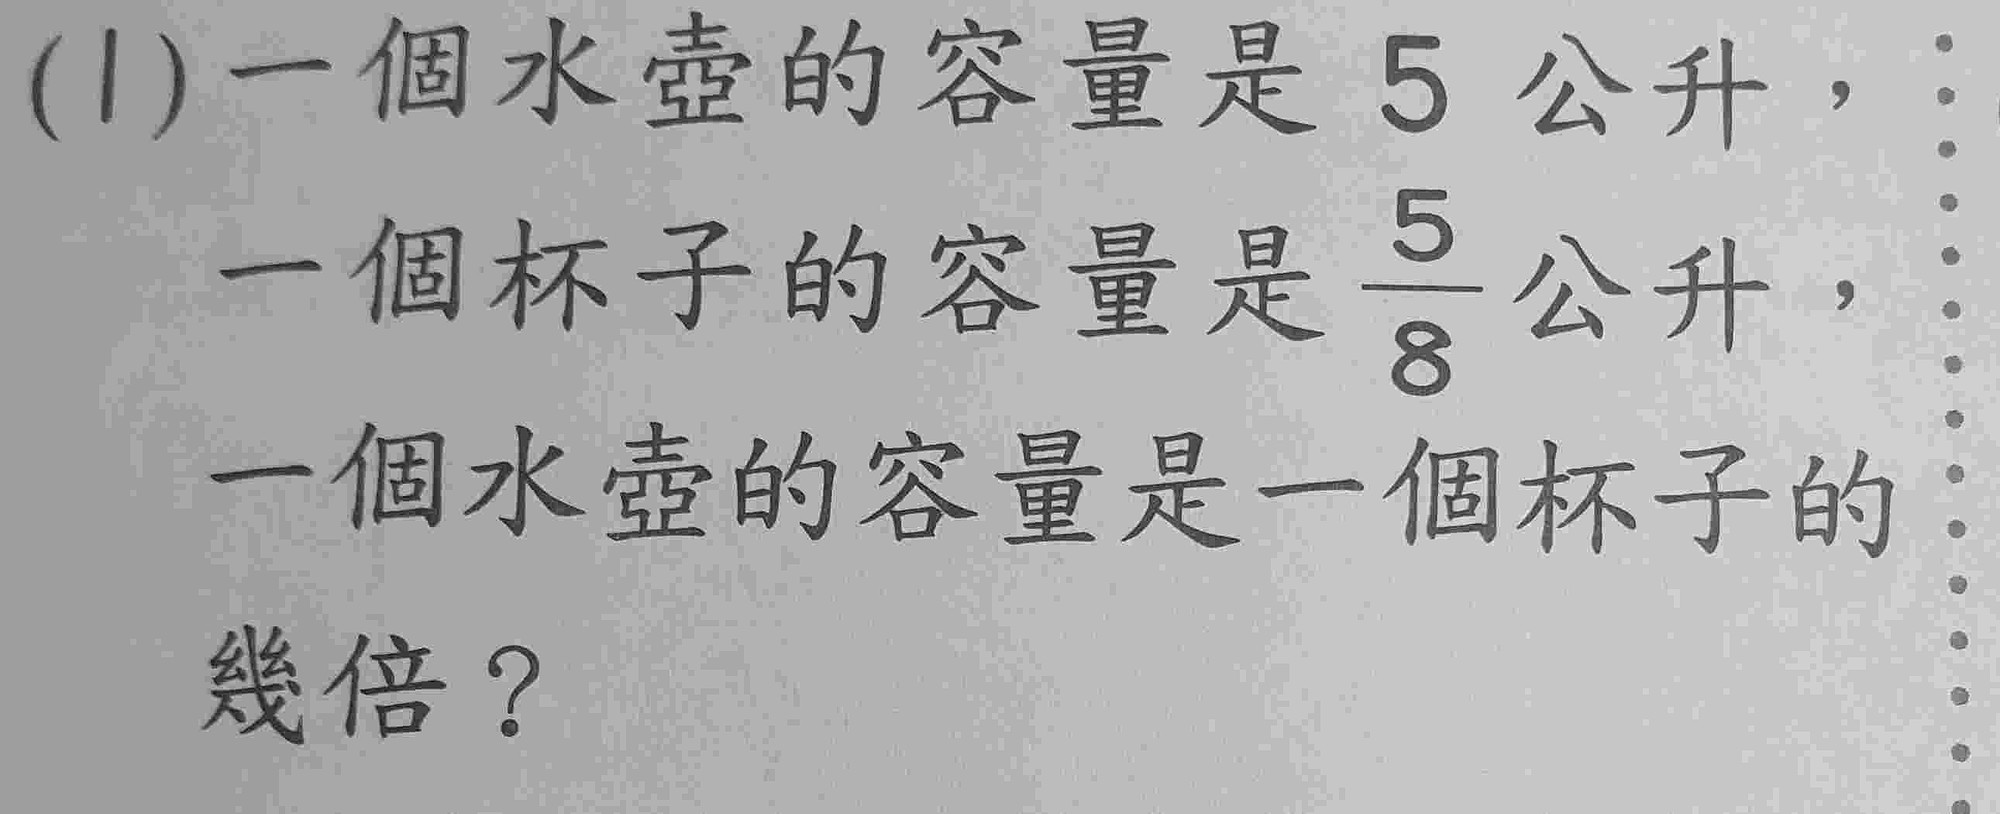 (1)一個水壺的容量是 5 公升，
一個杯子的容量是 5/8 公升，
一個水壺的容量是一個杯子的
幾倍？